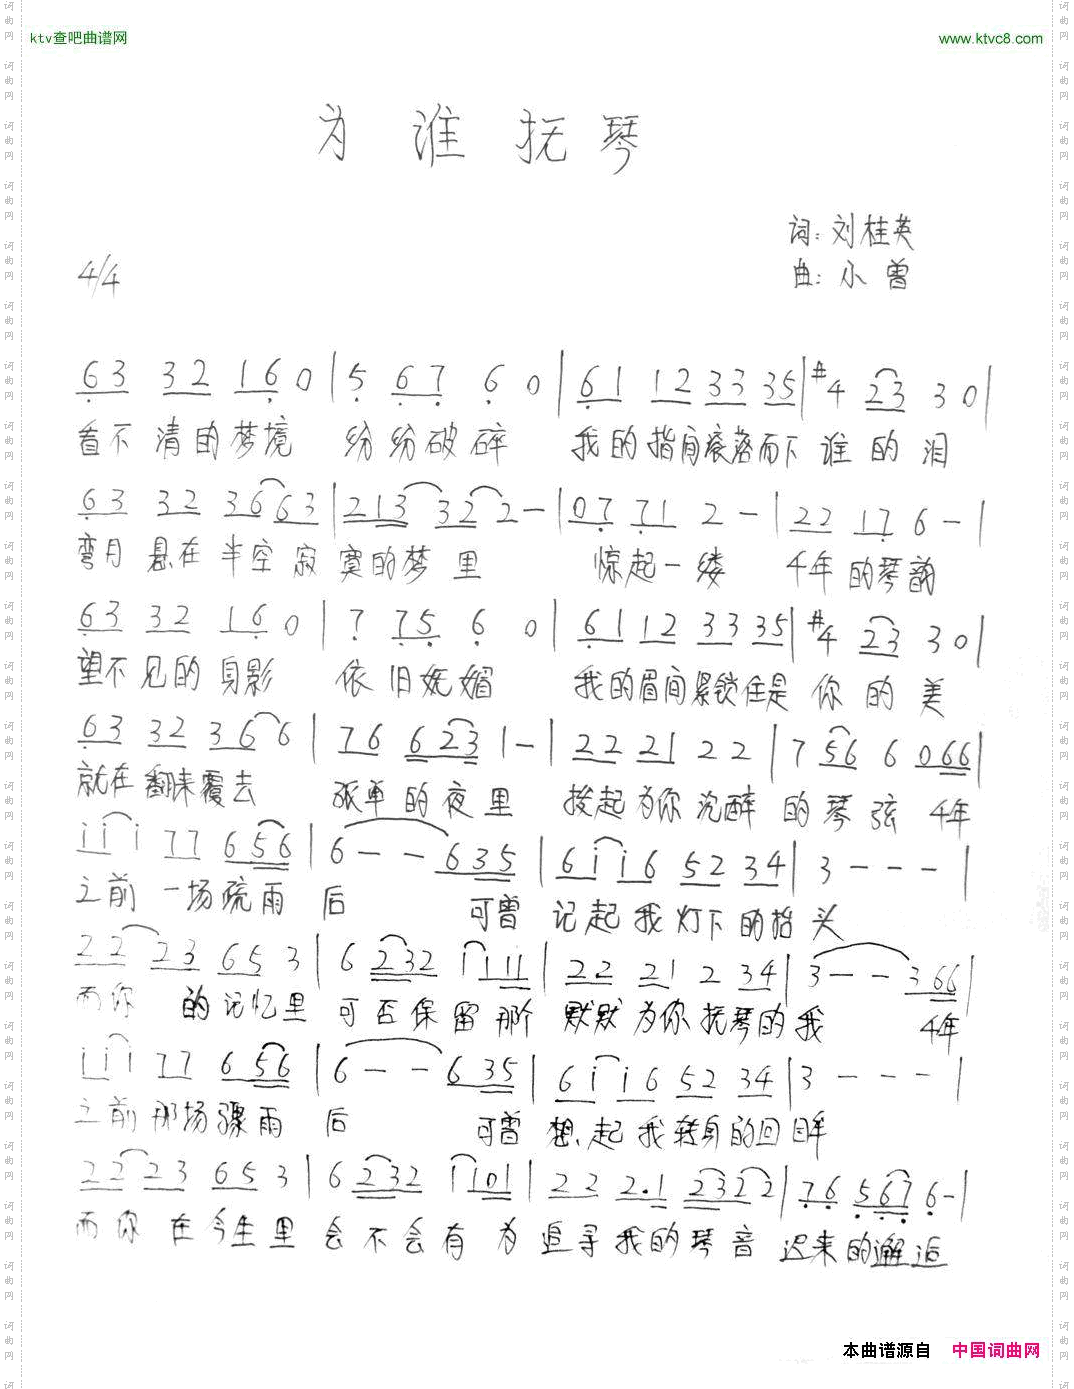 ktv查吧曲谱网
www.ktvc8.com
为谁抚琴
词：刘桂英
4/4
曲：小曾
63 32 16 0 | 5 67 6 0 | 61 12 33 35 | #4 23 3 0 |
看不 清的梦境 纷纷破碎 我的指间滚落而下 谁的泪
63 32 36 63 | 213 32 2 - | 07 71 2 - | 22 17 6 - |
弯月 悬在 半空 寂寞的梦里 惊起一缕 千年的琴韵
63 32 16 0 | 7 75 6 0 | 61 12 33 35 | #4 23 3 0 |
望不见的身影 依旧妩媚 我的眉间紧锁住是 你的美
63 32 36 6 | 76 623 1 - | 22 21 2 2 | 7 56 6 066 |
就在翻来覆去 孤单的夜里 拨起为你沉醉的琴弦 千年
i i i 77 656 | 6 - - 635 | 6i i6 52 34 | 3 - - - |
之前 一场疏雨 后 可曾 记起我灯下的抬头
22 23 65 3 | 6 232 1 111 | 22 21 2 34 | 3 - - 366 |
而你 的记忆里 可否保留那个 默默为你抚琴的我 千年
i i i 77 656 | 6 - - 635 | 6i i6 52 34 | 3 - - - |
之前 那场骤雨 后 可曾 想起我转身的回眸
22 23 65 3 | 6 232 1 101 | 22 2.1 2322 | 76 567 6 - |
而你 在今生里 会不会有 为追寻我的琴音 迟来的邂逅
本曲谱源自 中国词曲网
词曲网